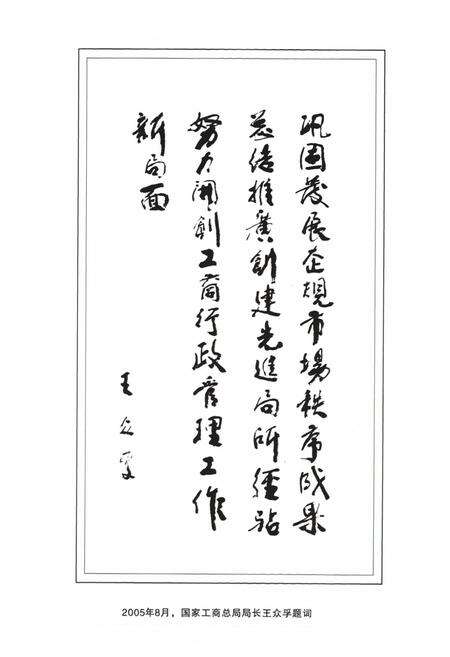 巩固發展企規市場秩序成果
总结推廣創建先進局所經验
努力開創工商行政管理工作
新局面
王众孚
2005年8月，国家工商总局局长王众孚题词